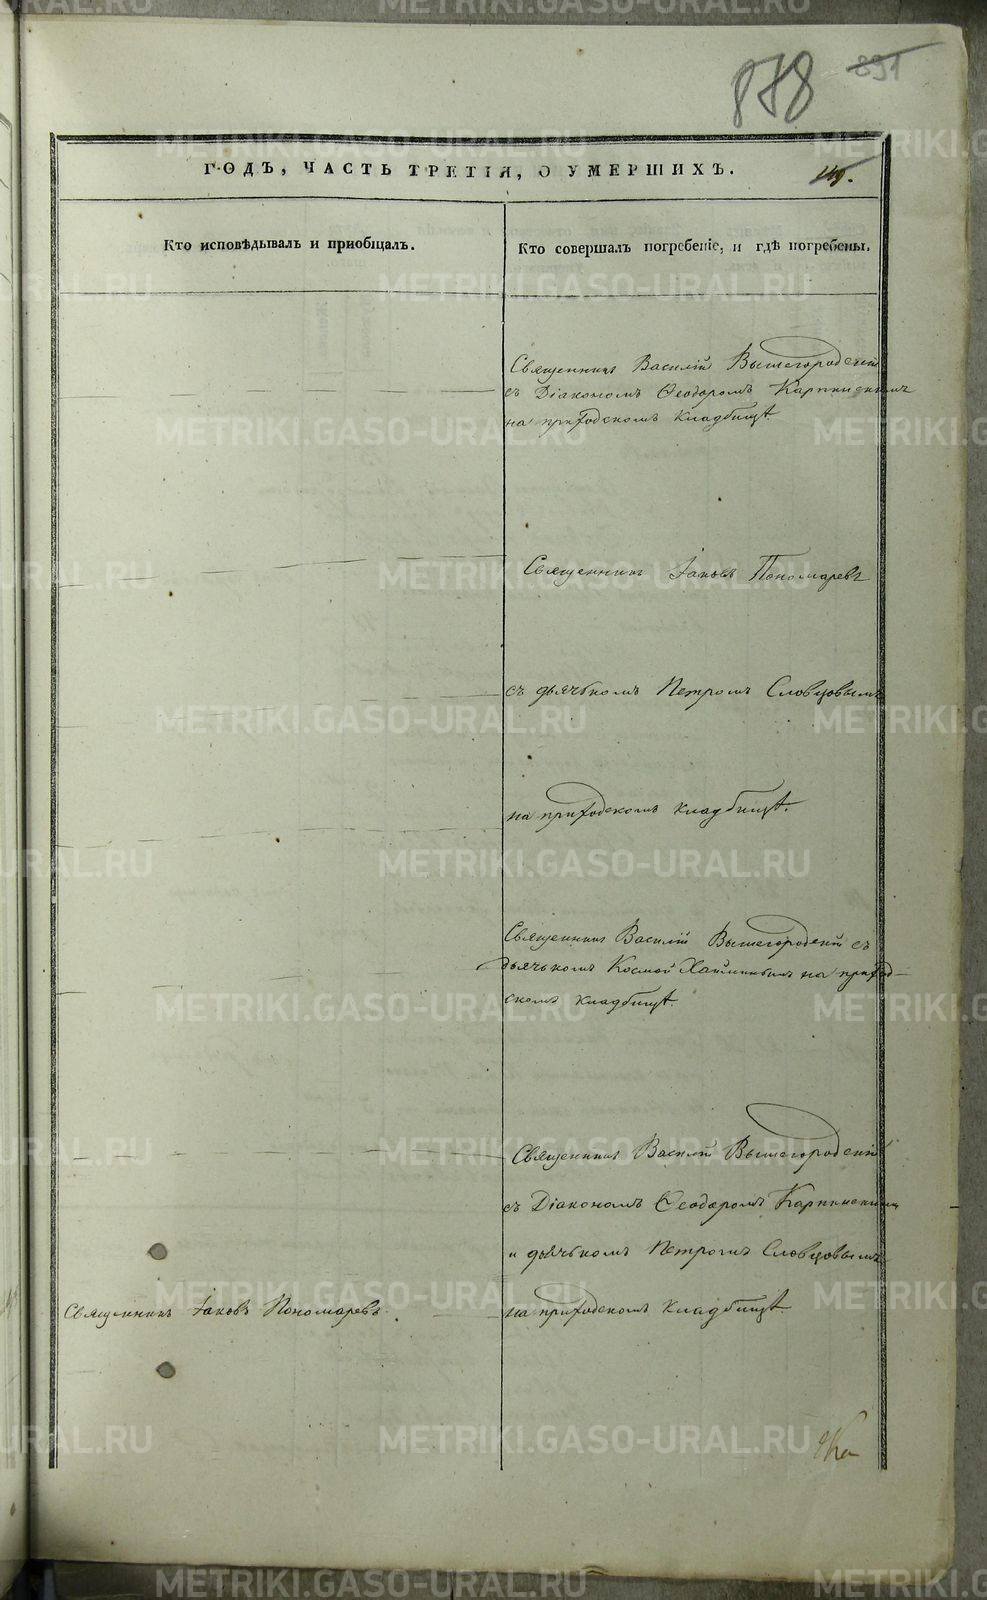 878 891
ГОДЪ, ЧАСТЬ ТРЕТІЯ, О УМЕРШИХЪ.
Кто исповѣдывалъ и приобщалъ.
Кто совершалъ погребеніе, и гдѣ погребены.
Священникъ Василій Вышегородскій
съ Діакономъ Ѳеодоромъ Карпинскимъ
на приходскомъ кладбищѣ
Священникъ Іаковъ Пономаревъ
съ дьячкомъ Петромъ Словцовымъ
на приходскомъ кладбищѣ.
Священникъ Василій Вышегородскій съ
дьячькомъ Космой на приход-
скомъ кладбищѣ.
Священникъ Василій Вышегородскій
съ Діакономъ Ѳеодоромъ Карпинскимъ
и дьячькомъ Петромъ Словцовымъ
Священникъ Іаковъ Пономаревъ.
на приходскомъ кладбищѣ
METRIKI.GASO-URAL.RU